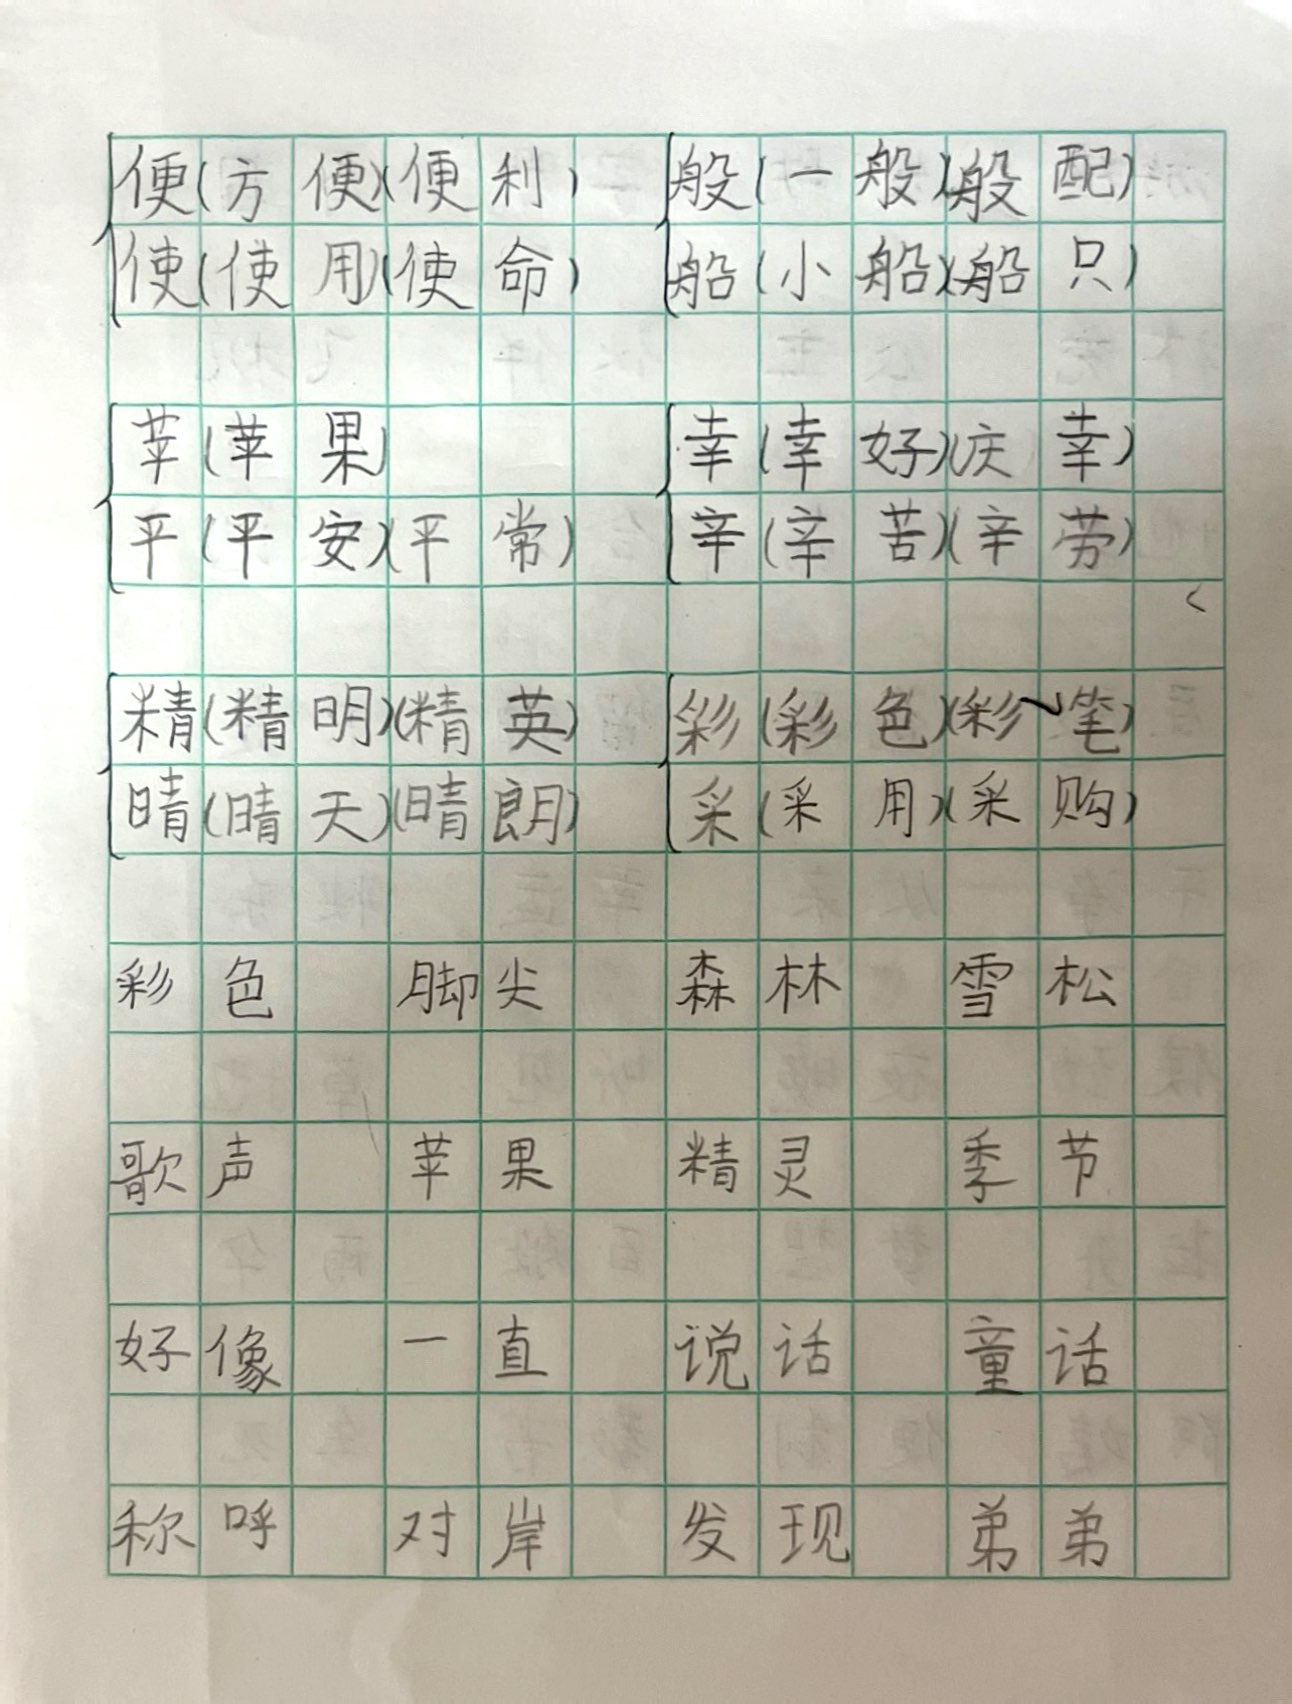 便(方便)(便利) 般(一般)(般配)
使(使用)(使命) 船(小船)(船只)
苹(苹果) 幸(幸好)(庆幸)
平(平安)(平常) 辛(辛苦)(辛劳)
精(精明)(精英) 彩(彩色)(彩笔)
晴(晴天)(晴朗) 采(采用)(采购)
彩色 脚尖 森林 雪松
歌声 苹果 精灵 季节
好像 一直 说话 童话
称呼 对岸 发现 弟弟